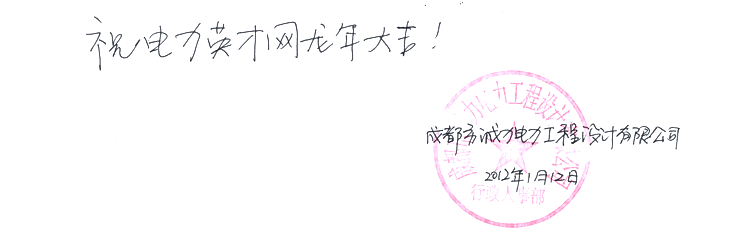 祝电力英才网龙年大吉!
成都市诚力电力工程设计有限公司
2012年1月12日
行政人事部